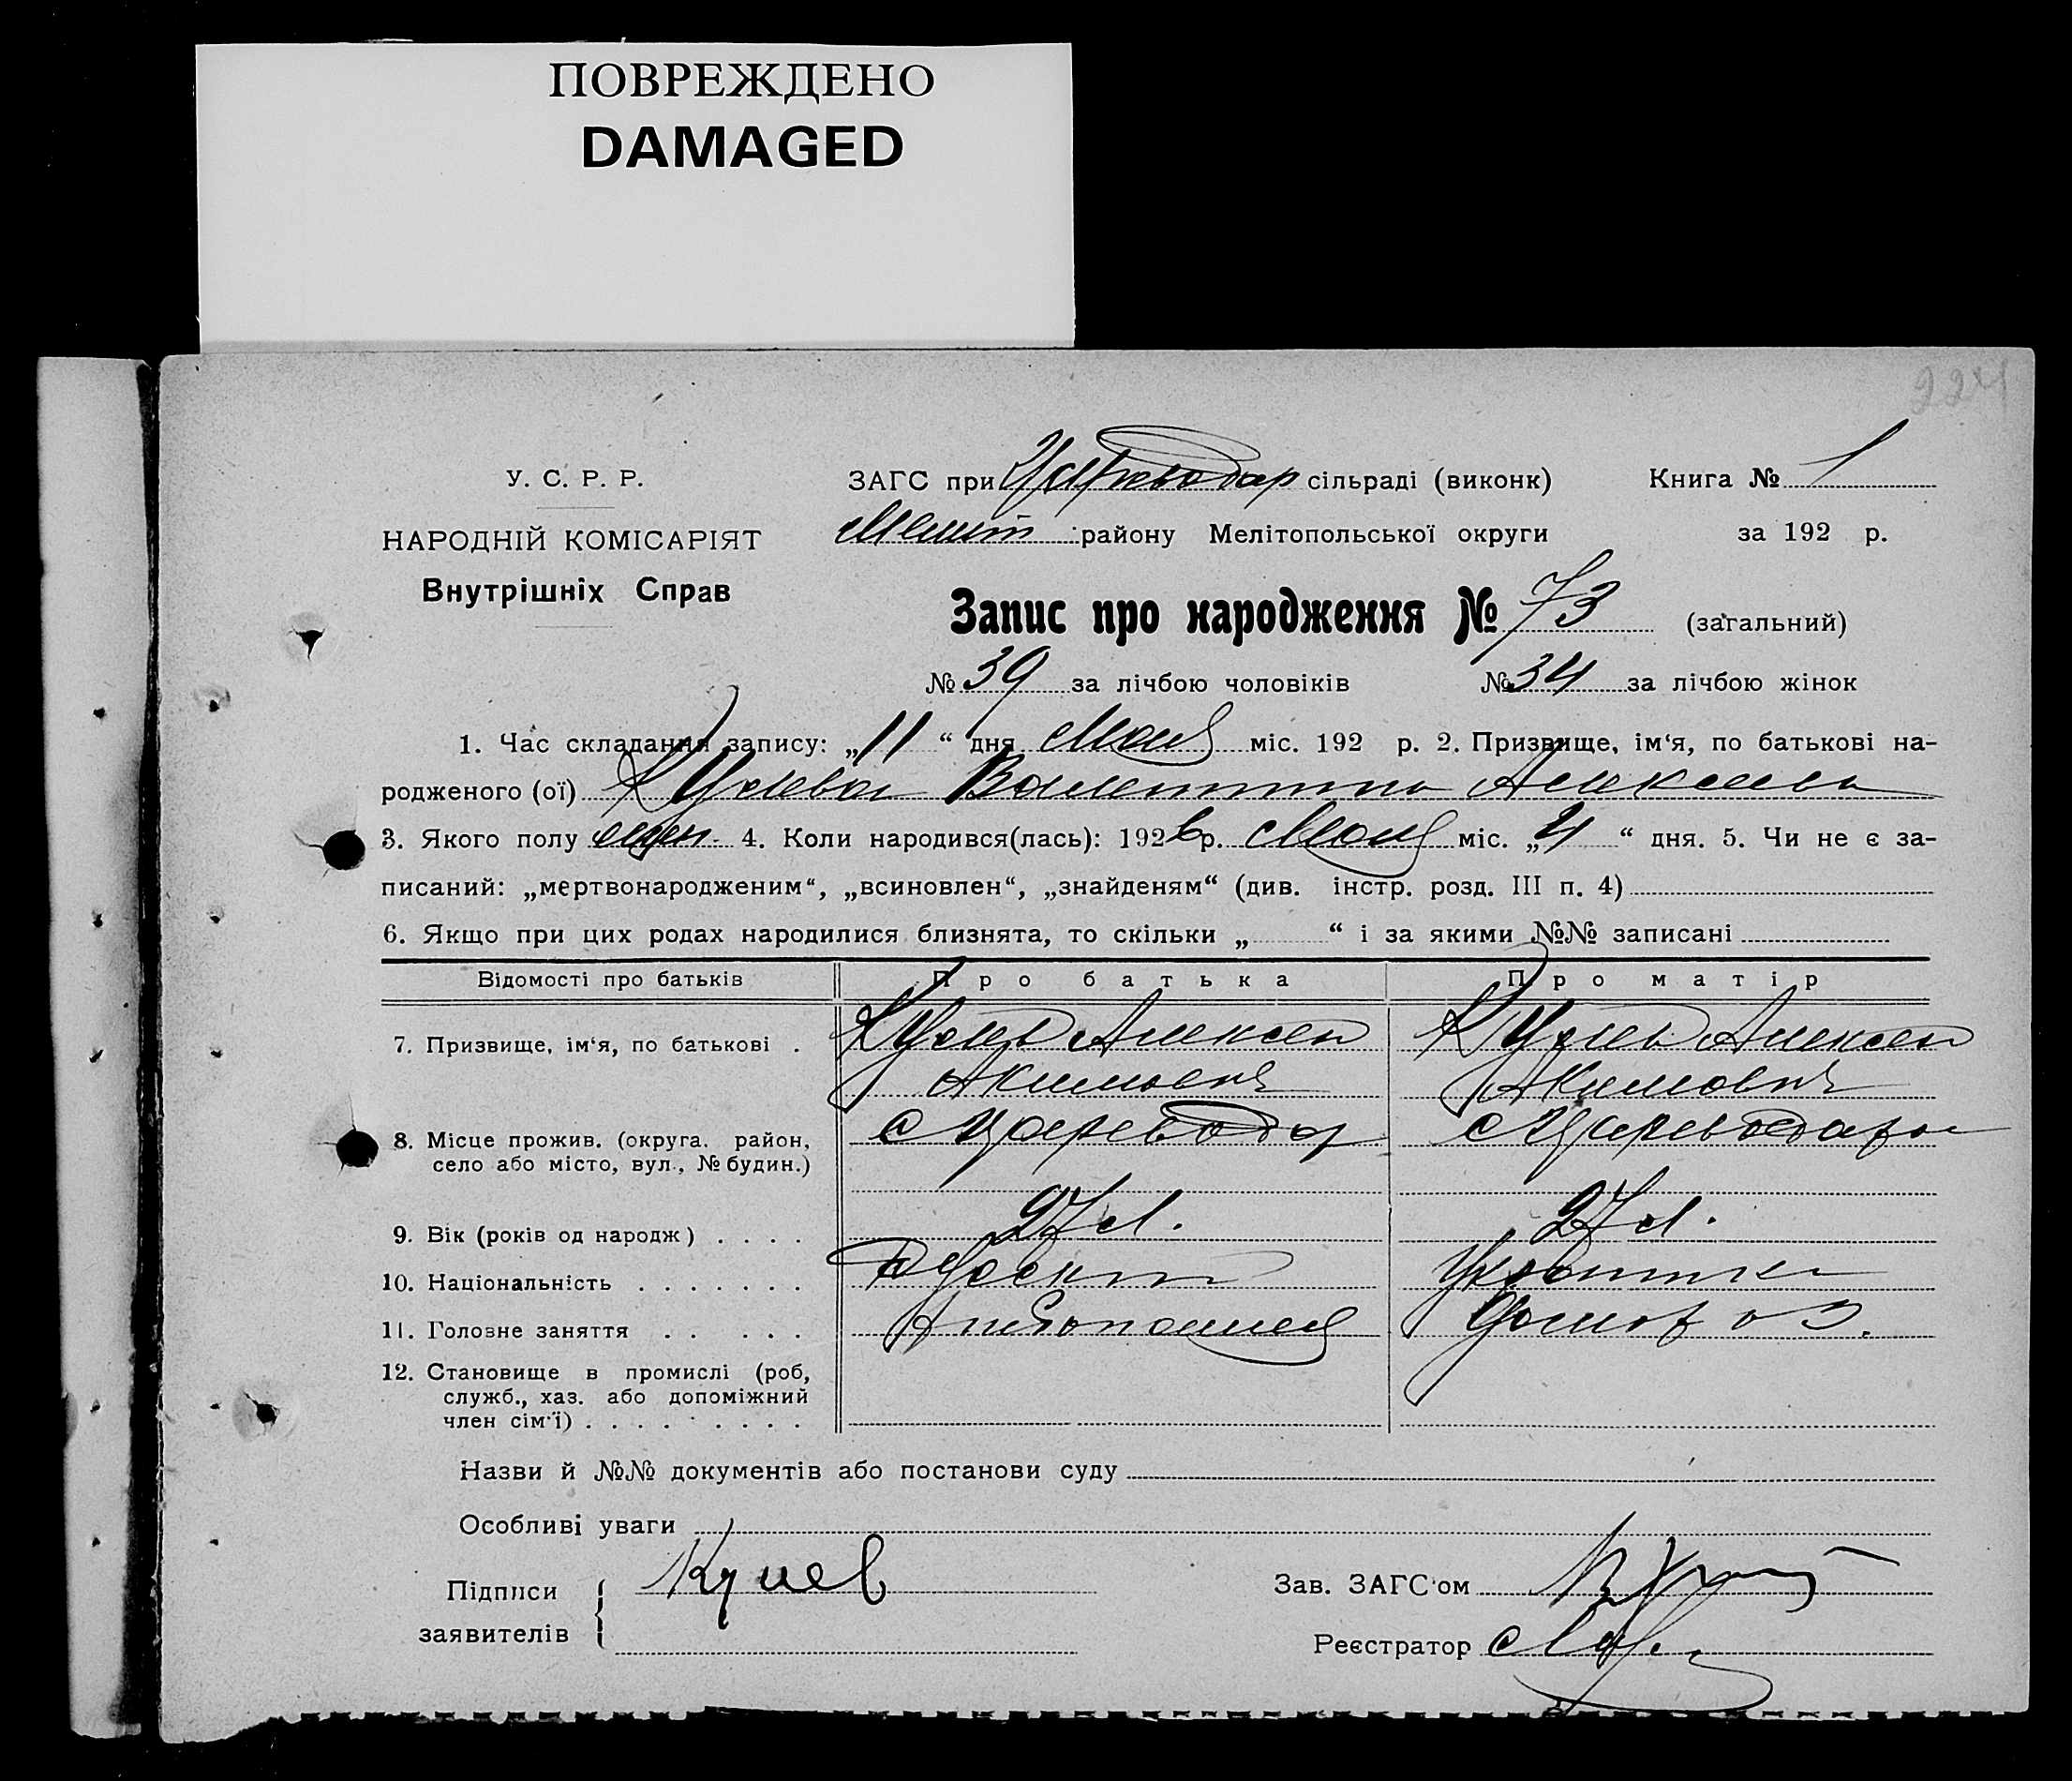 ПОВРЕЖДЕНО
DAMAGED
224
У. С. Р. Р.
НАРОДНІЙ КОМІСАРІЯТ
Внутрішніх Справ
ЗАГС при Цареводар сільраді (виконк)
Книга № 1
Мелит району Мелітопольської округи
за 192 р.
Запис про народження № 73 (загальний)
№ 39 за лічбою чоловіків № 34 за лічбою жінок
1. Час складання запису: „11“ дня Мая міс. 192 р. 2. Призвище, ім‘я, по батькові на-
родженого (ої) Валентина Алексеев
3. Якого полу 4. Коли народився(лась): 1926 р. Мая міс. „4“ дня. 5. Чи не є за-
писаний: „мертвонародженим“, „всиновлен“, „знайденям“ (див. інстр. розд. III п. 4)
6. Якщо при цих родах народилися близнята, то скільки „ “ і за якими №№ записані
Відомості про батьків Про батька Про матір
7. Призвище, ім‘я, по батькові . Алексей Алексей
Акимович Акимович
8. Місце прожив. (округа, район, с Цареводар с Цареводар
село або місто, вул., № будин.)
9. Вік (років од народж) . . . . 27 л. 27 л.
10. Національність . . . . . . .
11. Головне заняття . . . . .
12. Становище в промислі (роб,
служб., хаз. або допоміжний
член сім‘ї) . . . . . . . . .
Назви й №№ документів або постанови суду
Особливі уваги
Підписи
заявителів
Зав. ЗАГС‘ом
Реєстратор